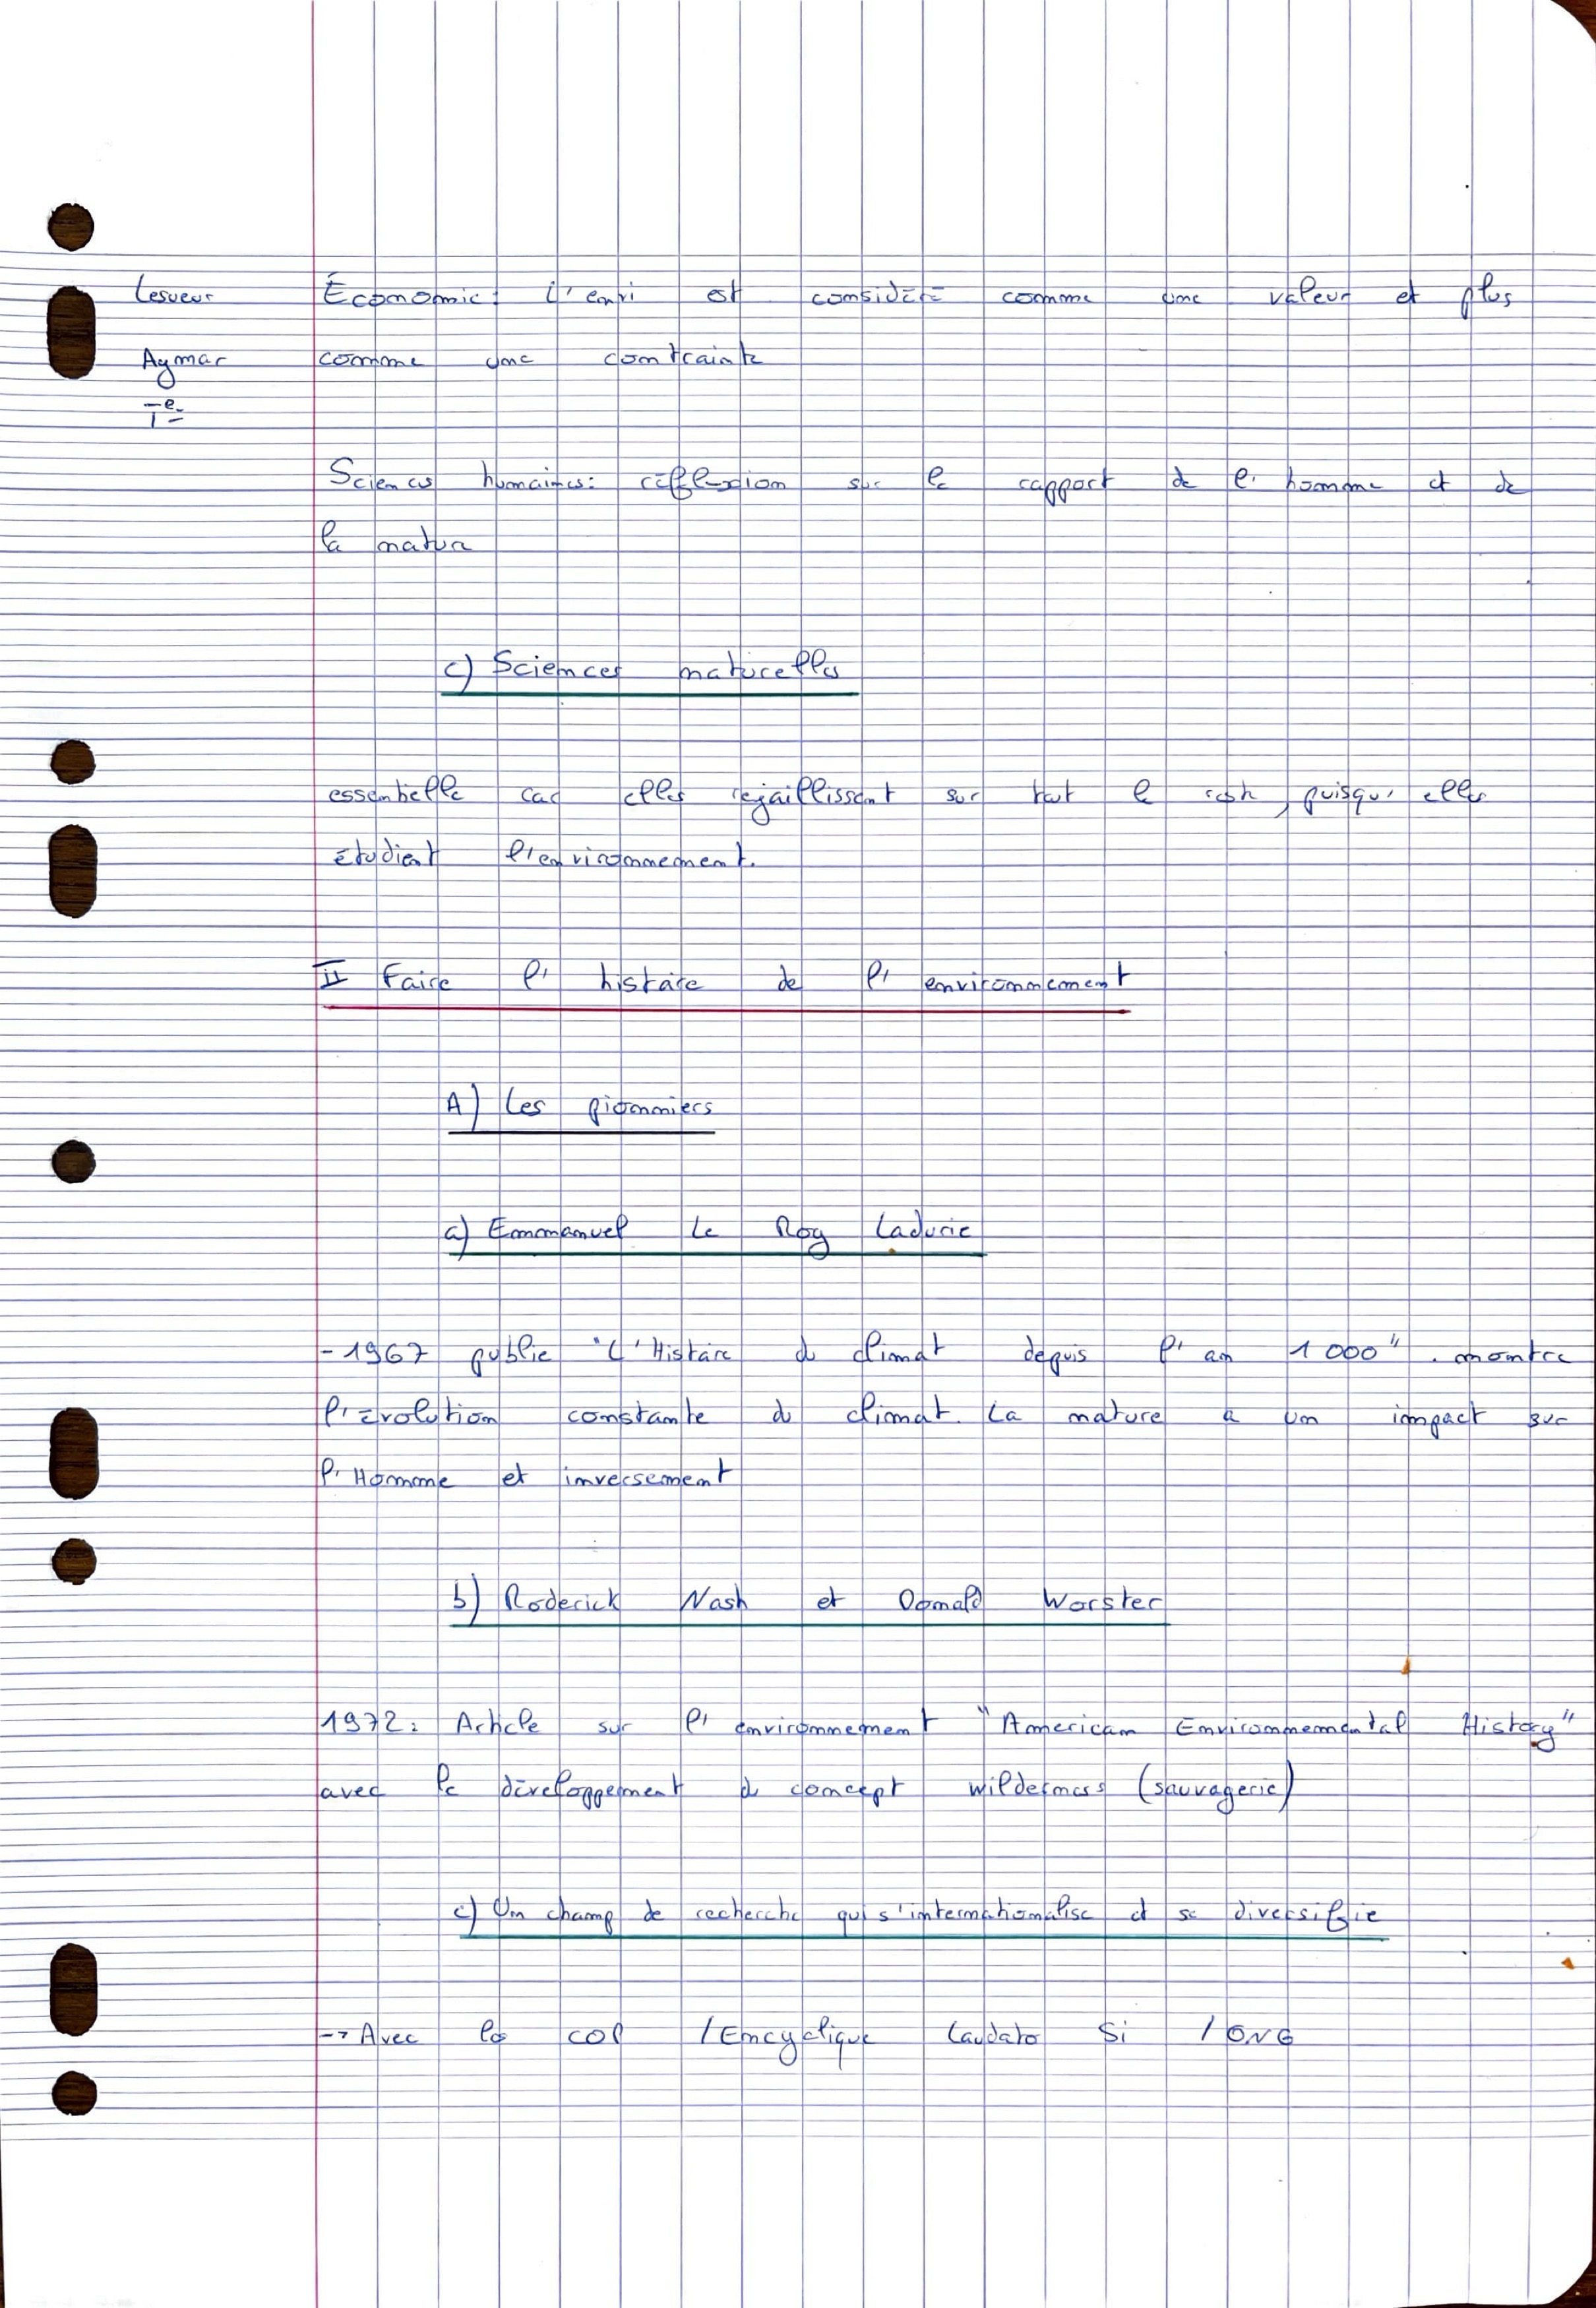 Lesueur
Aymar
Te
Économie: L'envi est considéré comme une valeur et plus
comme une contrainte
Sciences humaines: réflexion sur le rapport de l'homme et de
la nature
c) Sciences naturelles
essentielle car elles rejaillissent sur tout le reste, puisqu'elles
étudient l'environnement.
II Faire l'histoire de l'environnement
A) Les pionniers
a) Emmanuel Le Roy Ladurie
- 1967 publie "L'Histoire du climat depuis l'an 1000". montre
l'évolution constante du climat. La nature a un impact sur
l'Homme et inversement
b) Roderick Nash et Donald Worster
1972: Article sur l'environnement "American Environnemental History"
avec le développement du concept wilderness (sauvagerie)
c) Un champ de recherche qui s'internationalise et se diversifie
-> Avec les COP / Encyclique Laudato Si / ONG